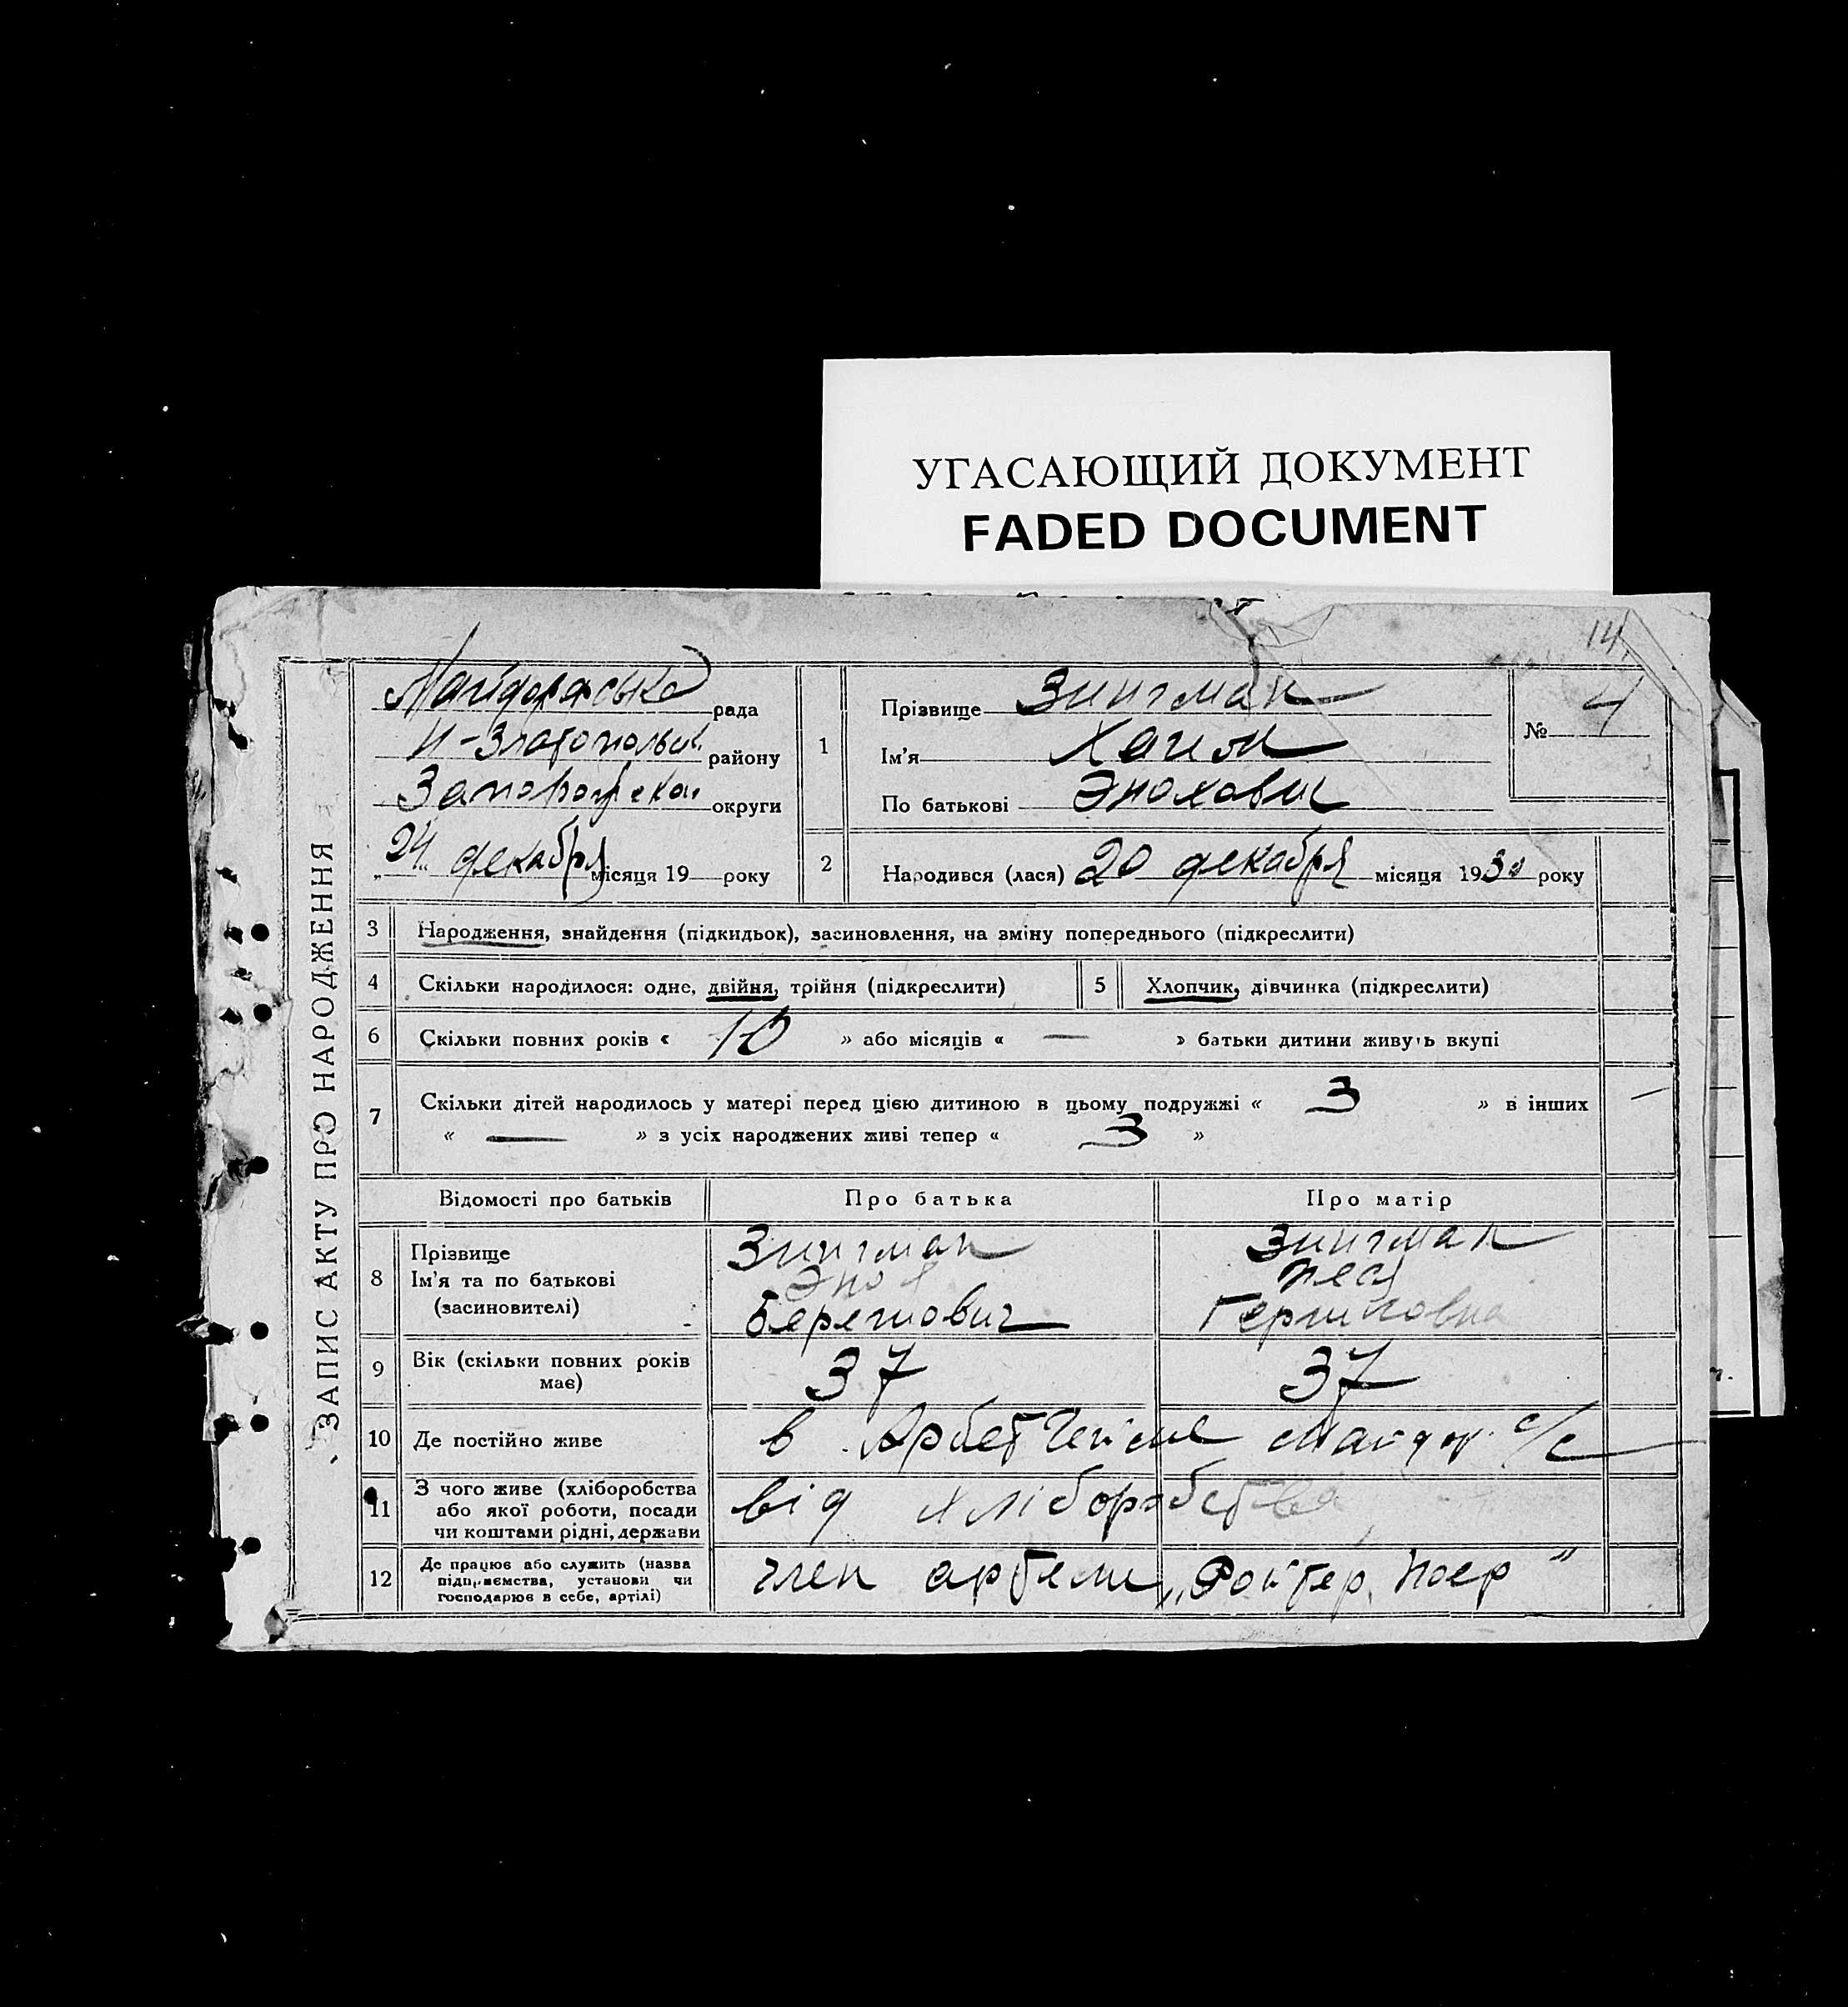 УГАСАЮЩИЙ ДОКУМЕНТ
FADED DOCUMENT
14
ЗАПИС АКТУ ПРО НАРОДЖЕННЯ
Майдорфська рада
Н-Златопольск. району
Запорожской округи
„24" декабря місяця 19 року
1
Прізвище Зингман
Ім'я Хаим
По батькові Энохович
№ 4
2 Народився (лася) 20 декабря місяця 1930 року
3 Народження, знайдення (підкидьок), засиновлення, на зміну попереднього (підкреслити)
4 Скільки народилося: одне, двійня, трійня (підкреслити) 5 Хлопчик, дівчинка (підкреслити)
6 Скільки повних років « 10 » або місяців « — » батьки дитини живуть вкупі
7 Скільки дітей народилось у матері перед цією дитиною в цьому подружжі « 3 » в інших
« — » з усіх народжених живі тепер « 3 »
Відомості про батьків Про батька Про матір
8 Прізвище Зингман Зингман
Ім'я та по батькові Энох Песя
(засиновителі) Беркович
9 Вік (скільки повних років 37 37
має)
10 Де постійно живе в Арбетгейме Майдор. с/с
11 З чого живе (хліборобства від хліборобства
або якої роботи, посади
чи коштами рідні, держави
12 Де працює або служить (назва член артели „Ройтер Поер"
підприємства, установи чи
господарює в себе, артілі)